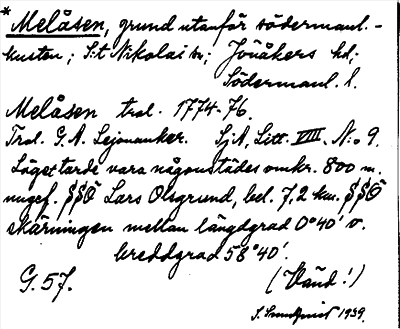 * Melåsen, grund utanför södermanl.-
kusten; S:t Nikolai sn; Jönåkers hd;
Södermanl. l.
Melåsen trol. 1774-76.
Trol. G. A. Lejonanker. SjA, Litt. VIII, N:o 9.
Läget torde vara någonstädes omkr. 800 m.
ungef. SSÖ Lars Olsgrund, bel. 7,2 km. SSÖ
skärningen mellan längdgrad 0°40' v.
breddgrad 58°40'.
G. 57. (Vänd!)
S. Sundquist 1939.